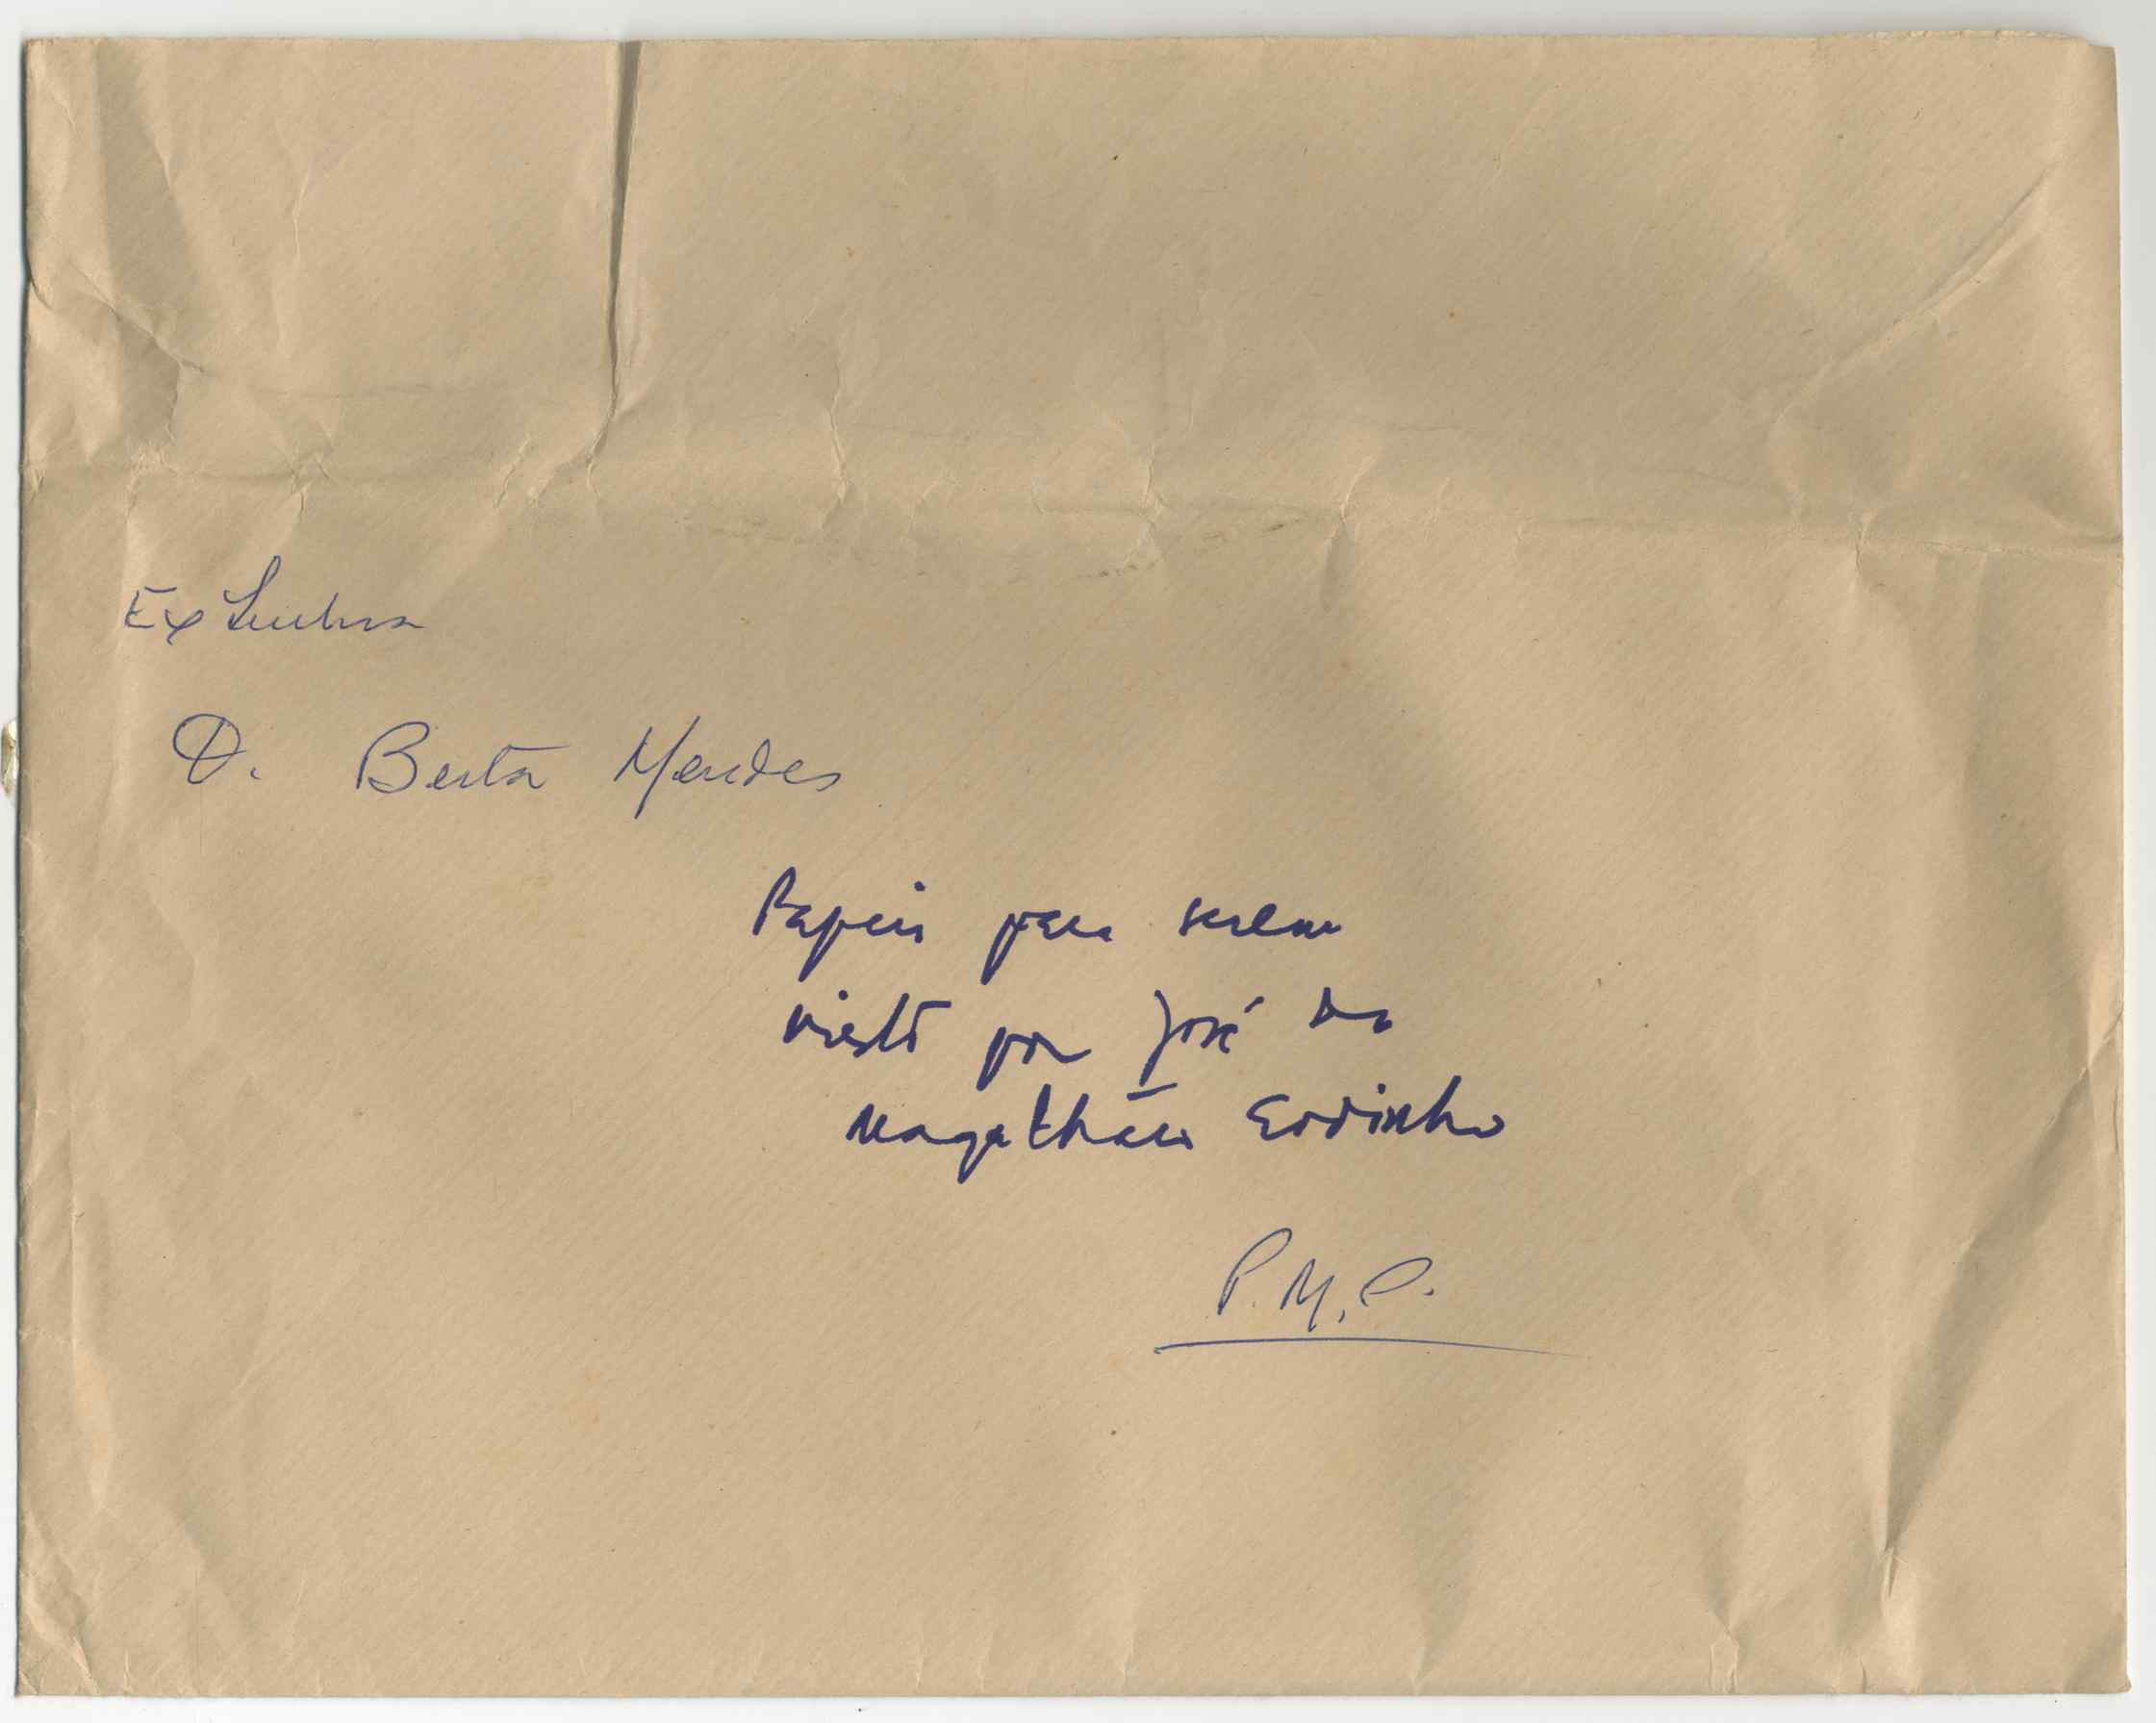 Ex Senhora
D. Berta Mendes
Papeis para serem
visto por José de
Magalhães Godinho
P.M.P.